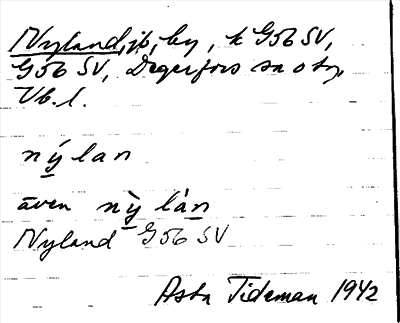 Nyland, jb, by, k G56 SV,
G56 SV, Degerfors sn o tg,
Vb. l.
ný lan
även nỳ lán
Nyland G56 SV
Asta Tideman 1942